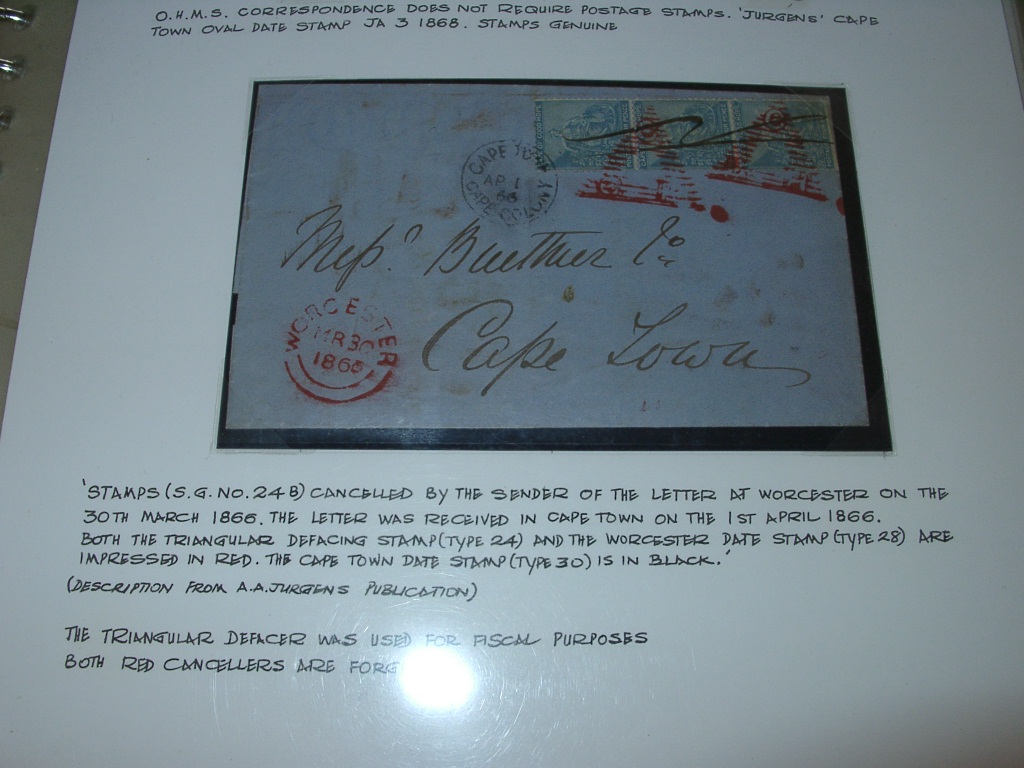 O.H.M.S. CORRESPONDENCE DOES NOT REQUIRE POSTAGE STAMPS. 'JURGENS' CAPE
TOWN OVAL DATE STAMP JA 3 1868. STAMPS GENUINE
CAPE TOWN
AP 1
66
CAPE COLONY
Messrs Buettner & Co
Cape Town
WORCESTER
MR 30
1866
'STAMPS (S.G. NO. 24 B) CANCELLED BY THE SENDER OF THE LETTER AT WORCESTER ON THE
30TH MARCH 1866. THE LETTER WAS RECEIVED IN CAPE TOWN ON THE 1ST APRIL 1866.
BOTH THE TRIANGULAR DEFACING STAMP (TYPE 24) AND THE WORCESTER DATE STAMP (TYPE 28) ARE
IMPRESSED IN RED. THE CAPE TOWN DATE STAMP (TYPE 30) IS IN BLACK.'
(DESCRIPTION FROM A.A. JURGENS PUBLICATION)
THE TRIANGULAR DEFACER WAS USED FOR FISCAL PURPOSES
BOTH RED CANCELLERS ARE FORG